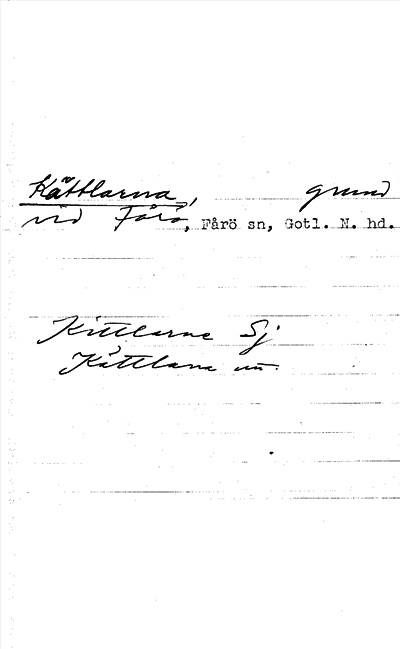 Kättlarna, grund
vid Fårö, Fårö sn, Gotl. N. hd.
Kittlarne Sj
Kättlana